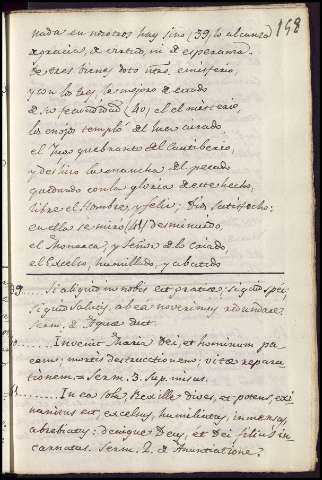 158
nada en nosotros hay sino (39) lo alcanza
de gracias, de virtud, ni de esperanza.
De tres bienes dotó nro. emisferio,
y con los tres, las mejoró de estado
de su fecundidad (40) el el misterio,
los enojos templó del Juez airado,
el Jugo quebrantó del Cautiberio,
y deshizo la mancha del pecado
quedando con la gloria de este hecho,
libre el Hombre, y feliz; Dios satisfecho:
en ella se miró (41) desminuido,
el Monarca, y Señor de lo criado,
el Excelso, humillado, y abatido
39..... Si aliquid in nobis est gratiae, si quid spei,
si quid salutis, ab ea noverimus redundare?
Serm. de Aquae duct.
40..... Invenit Maria Dei, et hominum pa-
cem: mortis destructionem; vitae repara-
tionem. = Serm. 3. Sup. misus.
41..... In ea sola, Rex ille dives, et potens, exi-
nanitus est, excelsus, humiliatus, inmensus,
abrebiatus: denique Deus, et Dei filius in-
carnatus. Serm. 2. de Anuntiatione?